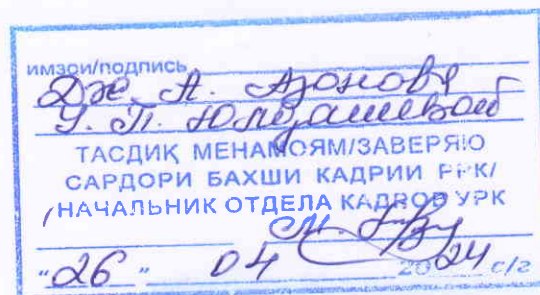 имзои/подпись
Дж. А. Азонова
У. П. Юлдашевой
ТАСДИҚ МЕНАМОЯМ/ЗАВЕРЯЮ
САРДОРИ БАХШИ КАДРИИ РРК/
НАЧАЛЬНИК ОТДЕЛА КАДРОВ УРК
"26" 04 2024 с/г